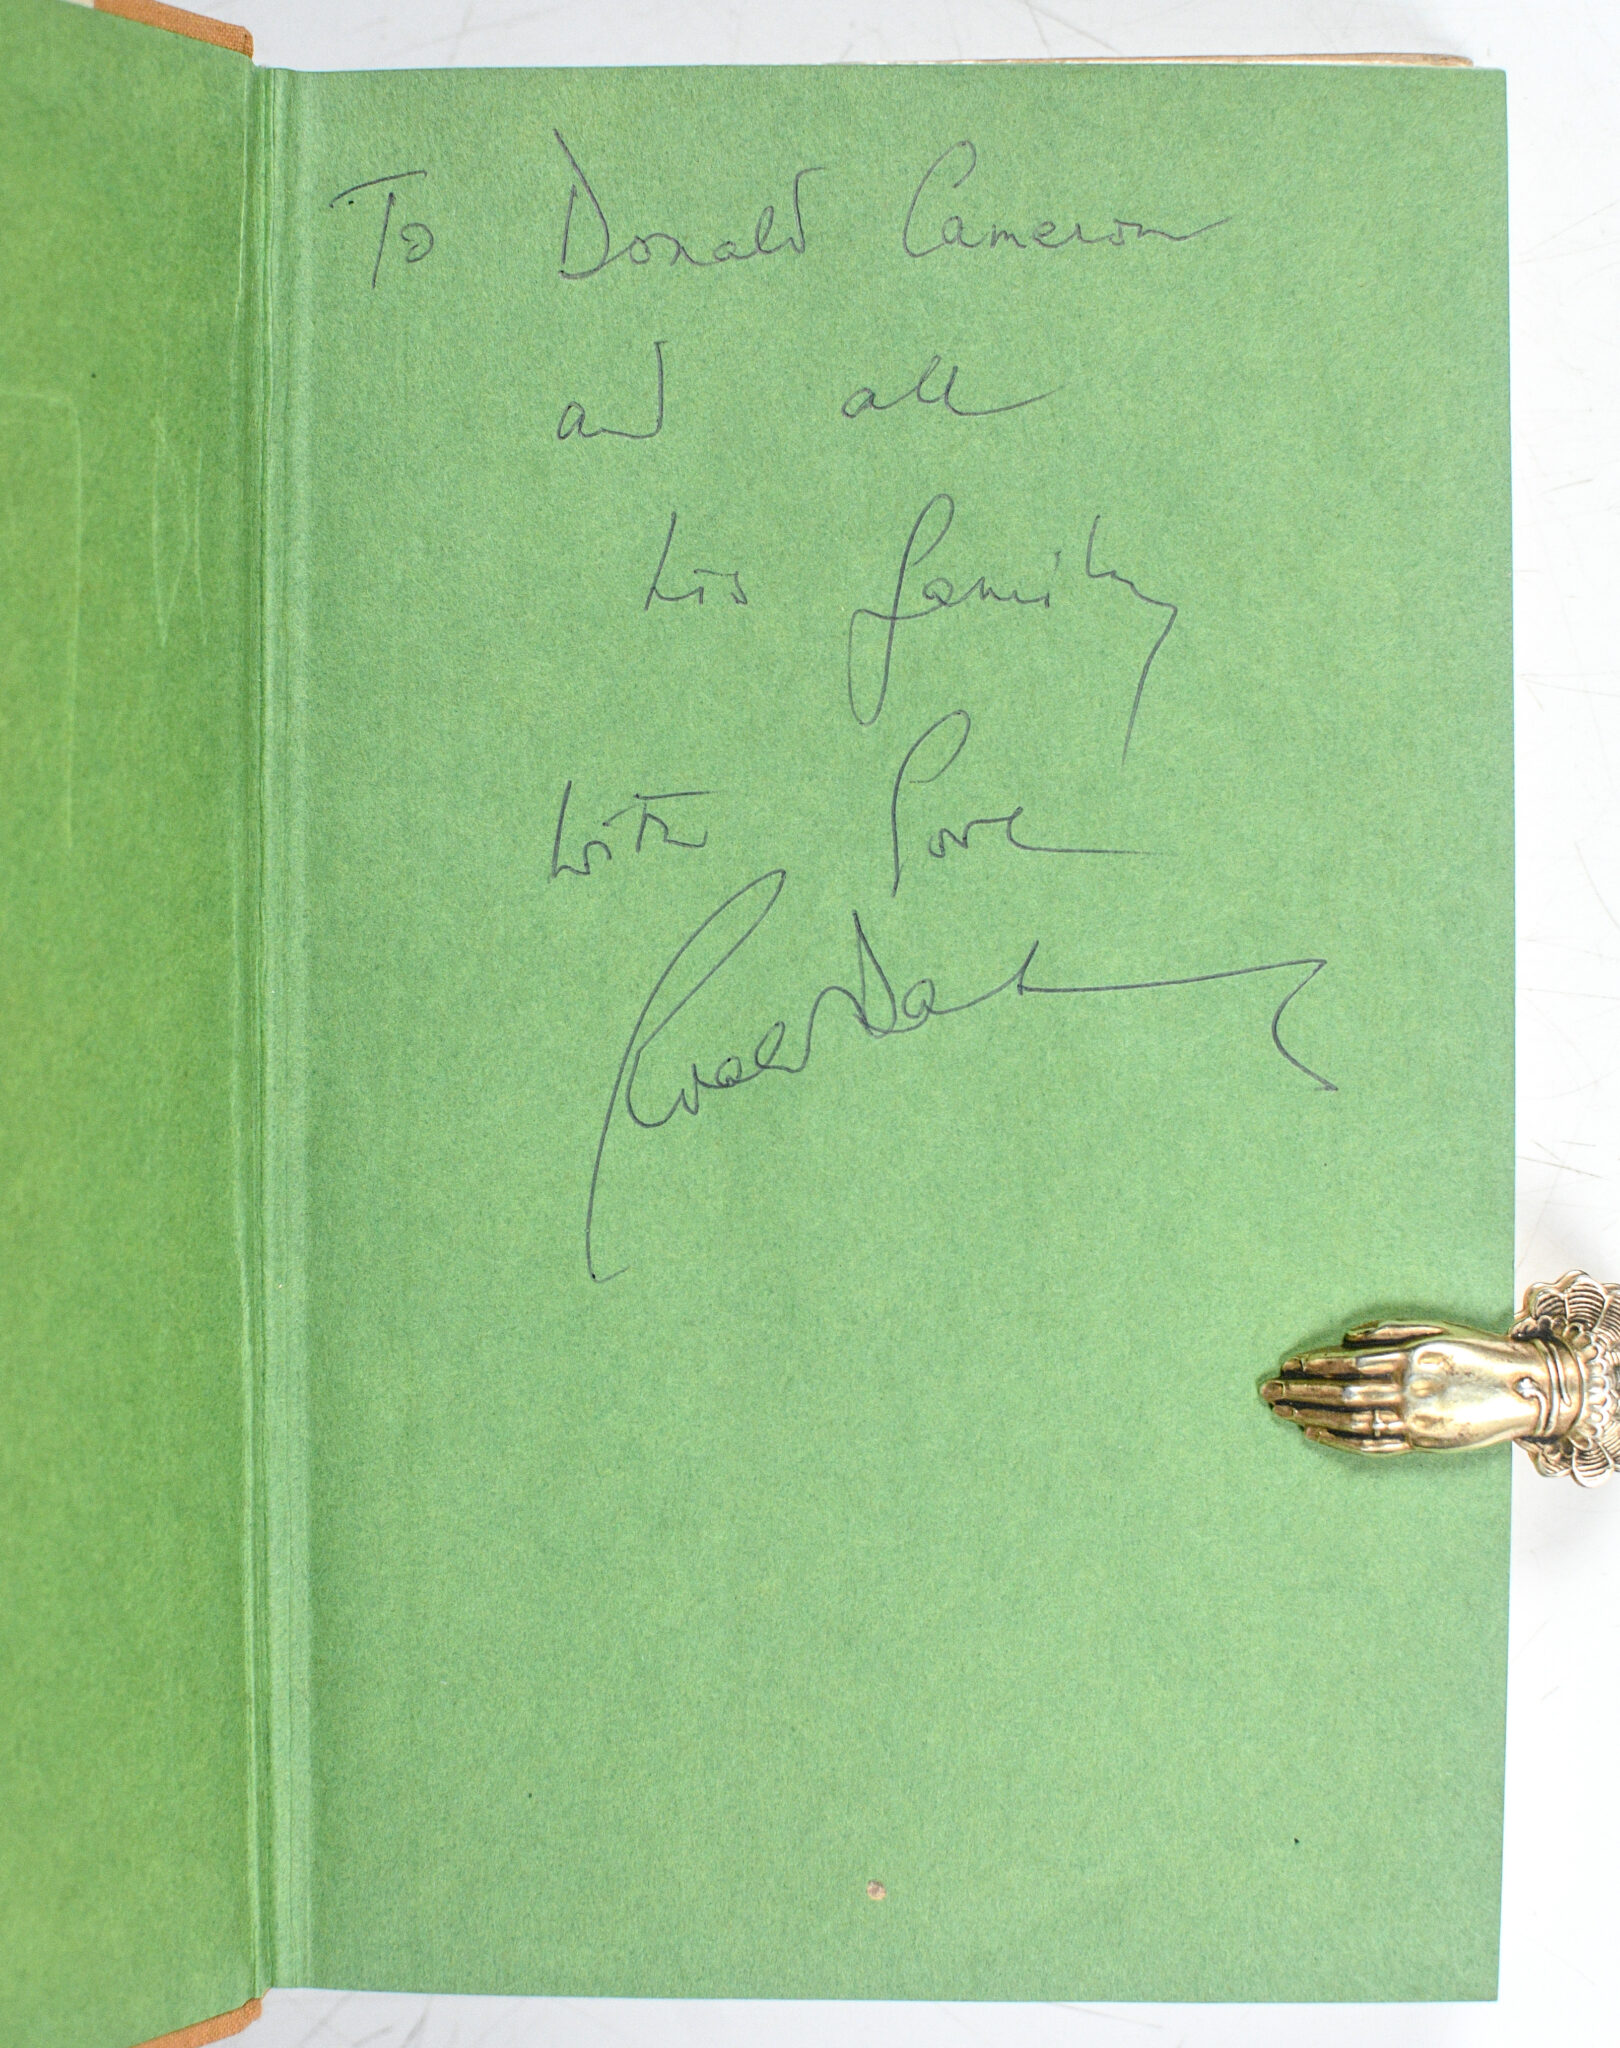 To Donald Cameron
and all
his family
with love
Roald Dahl